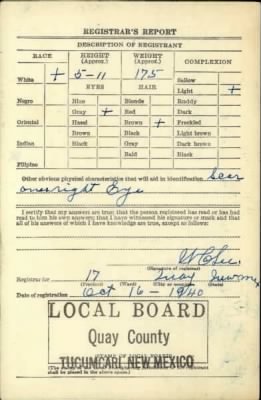 REGISTRAR'S REPORT
DESCRIPTION OF REGISTRANT
RACE HEIGHT (Approx.) WEIGHT (Approx.) COMPLEXION
White + 5-11 175 Sallow
EYES HAIR Light +
Negro Blue Blonde Ruddy
Gray + Red Dark
Oriental Hazel Brown + Freckled
Brown Black Light brown
Indian Black Gray Dark brown
Bald Black
Filipino
Other obvious physical characteristics that will aid in identification Scar
over right Eye
I certify that my answers are true; that the person registered has read or has had
read to him his own answers; that I have witnessed his signature or mark and that
all of his answers of which I have knowledge are true, except as follows:
(Signature of registrar)
Registrar for 17 Quay
(Precinct) (Ward) (City or county) (State)
Date of registration Oct 16 - 1940
LOCAL BOARD
Quay County
TUCUMCARI, NEW MEXICO
(STAMP OF LOCAL BOARD)
shall be placed in the above space.)